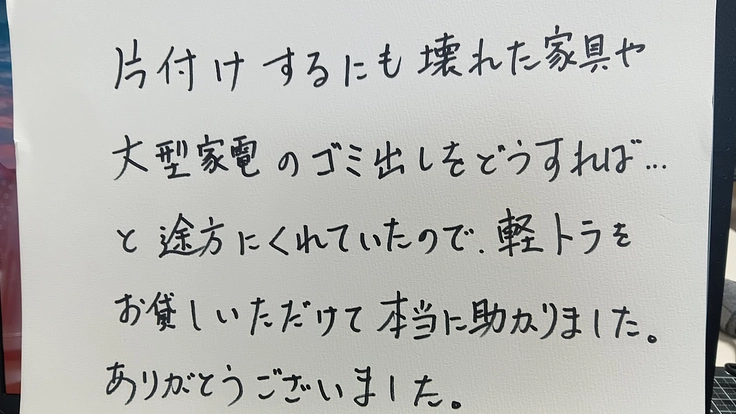 片付けするにも壊れた家具や
大型家電のゴミ出しをどうすれば…
と途方にくれていたので、軽トラを
お貸しいただけて本当に助かりました。
ありがとうございました。